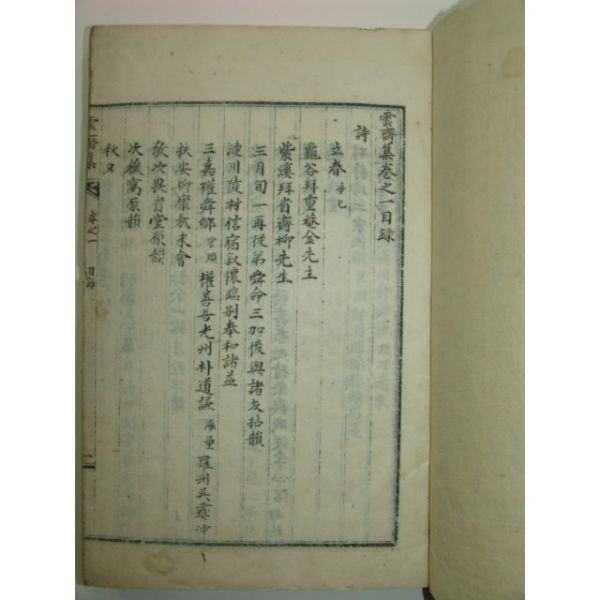 雲齋集卷之一目錄
詩
立春 辛巳
龜谷拜重菴金先生
紫溪拜省齋柳先生
三月旬一再從弟舜命三加後與諸友拈韻
漣川陵村信宿敍懷臨別奉和諸益
三嘉權舜鄉 權善吾光州朴道謙 羅州吳 仲
扶安柳 來會
敬次畏省堂原韻
次 窩原韻
秋夕
雲齋集
卷之一
目錄
一